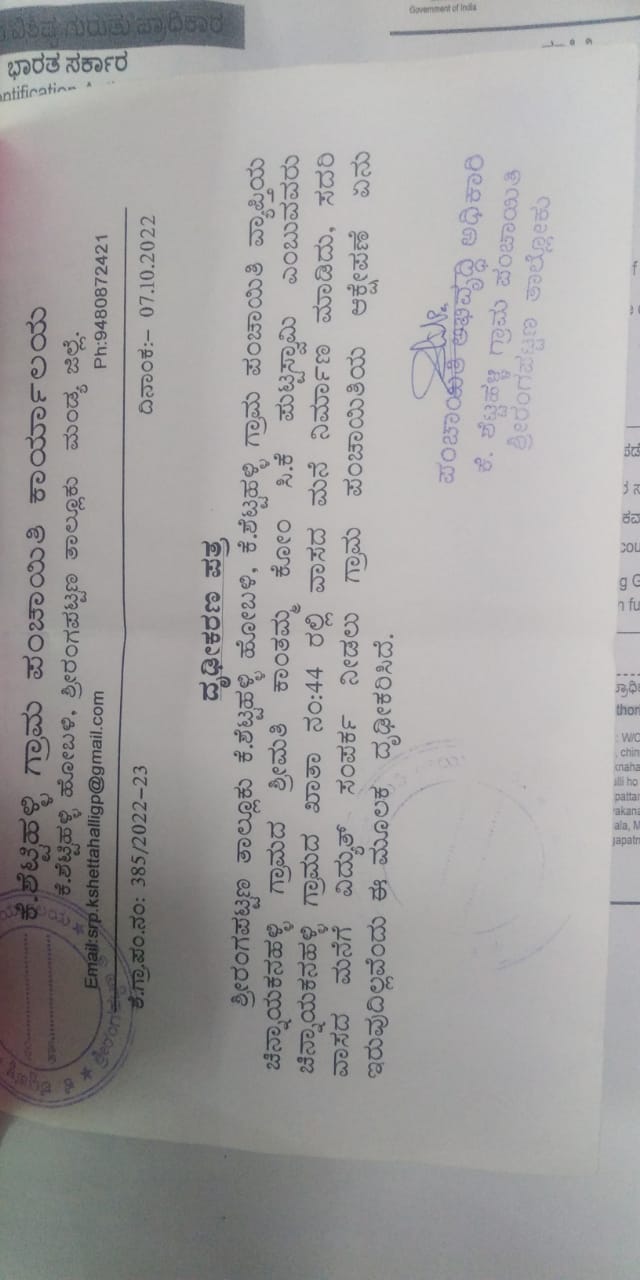 ಕೆ.ಶೆಟ್ಟಿಹಳ್ಳಿ ಗ್ರಾಮ ಪಂಚಾಯಿತಿ ಕಾರ್ಯಾಲಯ
ಕೆ.ಶೆಟ್ಟಿಹಳ್ಳಿ ಹೋಬಳಿ, ಶ್ರೀರಂಗಪಟ್ಟಣ ತಾಲ್ಲೂಕು ಮಂಡ್ಯ ಜಿಲ್ಲೆ.
Email:srp.kshettahalligp@gmail.com Ph:9480872421
ಕೆ.ಗ್ರಾ.ಪಂ.ನಂ: 385/2022-23 ದಿನಾಂಕ:- 07.10.2022
ದೃಢೀಕರಣ ಪತ್ರ
ಶ್ರೀರಂಗಪಟ್ಟಣ ತಾಲ್ಲೂಕು ಕೆ.ಶೆಟ್ಟಿಹಳ್ಳಿ ಹೋಬಳಿ, ಕೆ.ಶೆಟ್ಟಿಹಳ್ಳಿ ಗ್ರಾಮ ಪಂಚಾಯಿತಿ ವ್ಯಾಪ್ತಿಯ
ಚಿನ್ನಾಯಕನಹಳ್ಳಿ ಗ್ರಾಮದ ಶ್ರೀಮತಿ ಕಾಂತಮ್ಮ ಕೋಂ ಸಿ.ಕೆ ಪುಟ್ಟಸ್ವಾಮಿ ಎಂಬುವವರು
ಚಿನ್ನಾಯಕನಹಳ್ಳಿ ಗ್ರಾಮದ ಖಾತಾ ನಂ:44 ರಲ್ಲಿ ವಾಸದ ಮನೆ ನಿರ್ಮಾಣ ಮಾಡಿದು, ಸದರಿ
ವಾಸದ ಮನೆಗೆ ವಿದ್ಯುತ್ ಸಂಪರ್ಕ ನೀಡಲು ಗ್ರಾಮ ಪಂಚಾಯಿತಿಯ ಆಕ್ಷೇಪಣೆ ಏನು
ಇರುವುದಿಲ್ಲವೆಂದು ಈ ಮೂಲಕ ದೃಢೀಕರಿಸಿದೆ.
ಪಂಚಾಯಿತಿ ಅಭಿವೃದ್ಧಿ ಅಧಿಕಾರಿ
ಕೆ. ಶೆಟ್ಟಿಹಳ್ಳಿ ಗ್ರಾಮ ಪಂಚಾಯಿತಿ
ಶ್ರೀರಂಗಪಟ್ಟಣ ತಾಲ್ಲೋಕು
ವಿಶಿಷ್ಟ ಗುರುತು ಪ್ರಾಧಿಕಾರ
ಭಾರತ ಸರ್ಕಾರ
Government of India